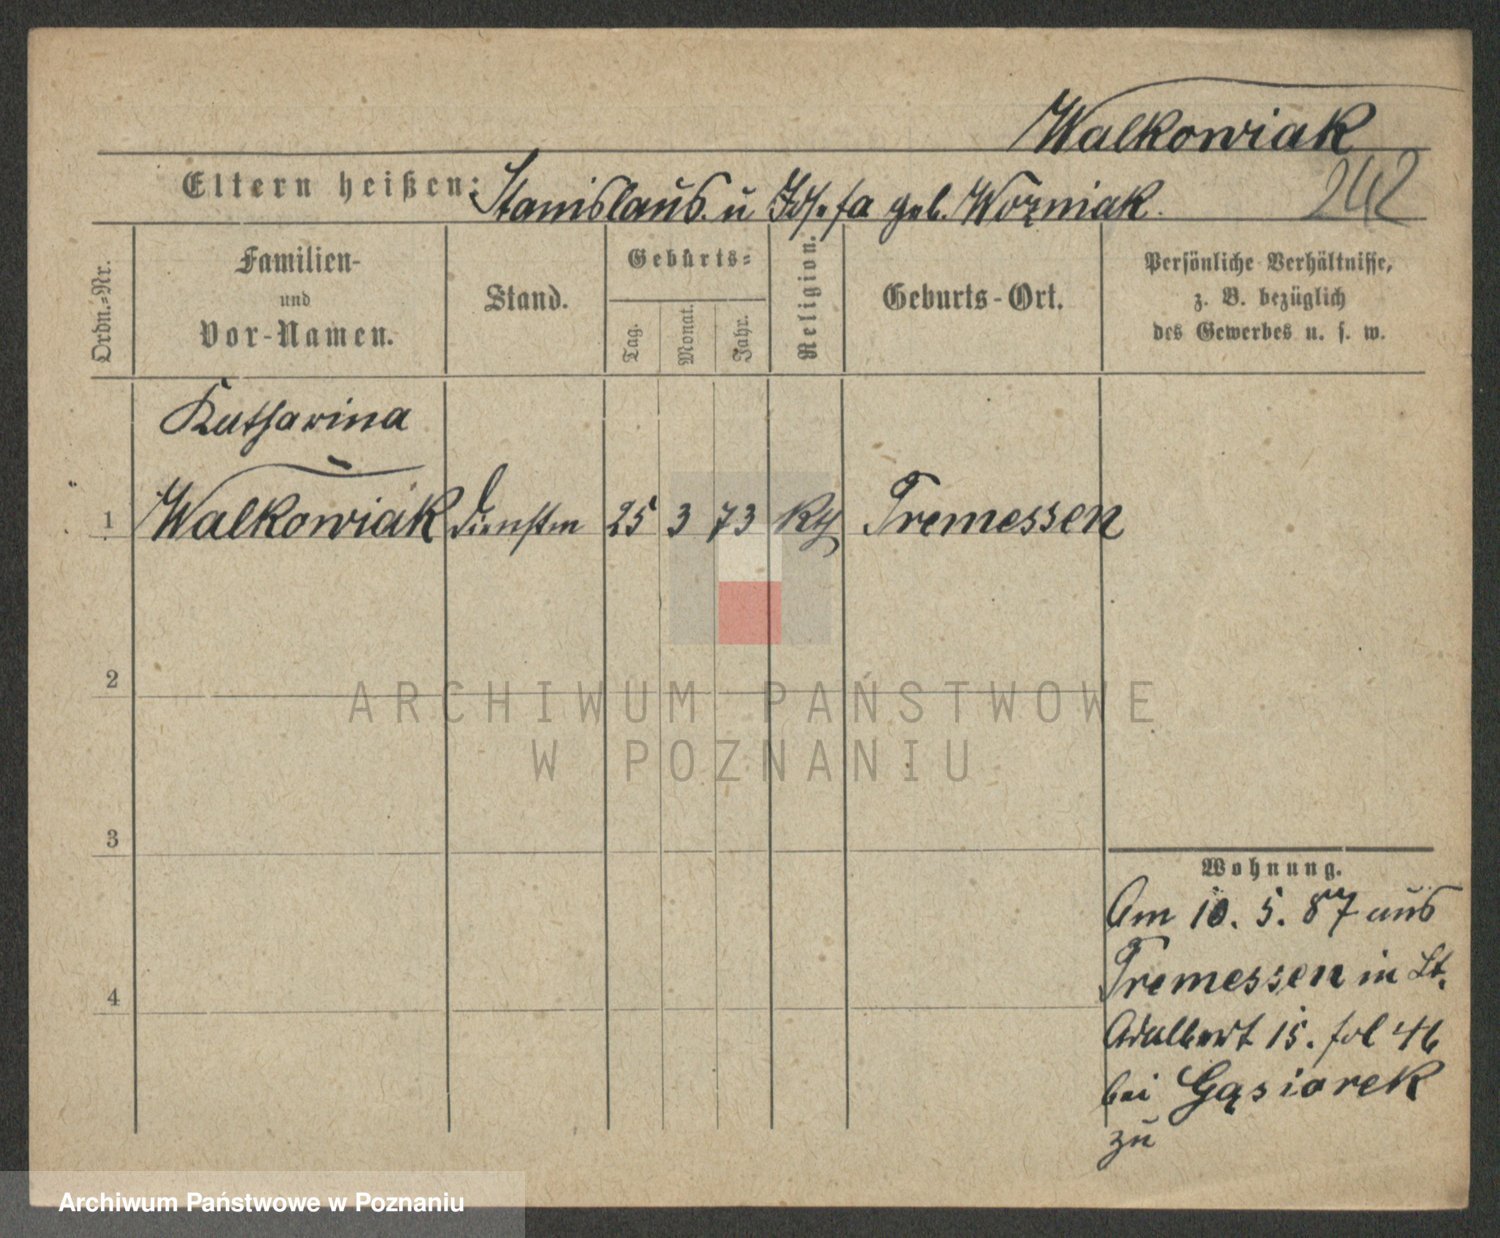 Walkowiak
242
Eltern heißen: Stanislaus u Josefa geb. Wozniak.
Ordn.-Nr.
Familien-
und
Vor-Namen.
Stand.
Geburts-
Tag.
Monat.
Jahr.
Religion.
Geburts-Ort.
Persönliche Verhältnisse,
z. B. bezüglich
des Gewerbes u. s. w.
Katharina
1 Walkowiak Dienstm 25 3 73 kth Tremessen
2
3
4
Wohnung.
Am 10. 5. 87 aus
Tremessen in St.
Adalbert 15. fol 46
bei Gąsiorek
zu
ARCHIWUM PAŃSTWOWE
W POZNANIU
Archiwum Państwowe w Poznaniu